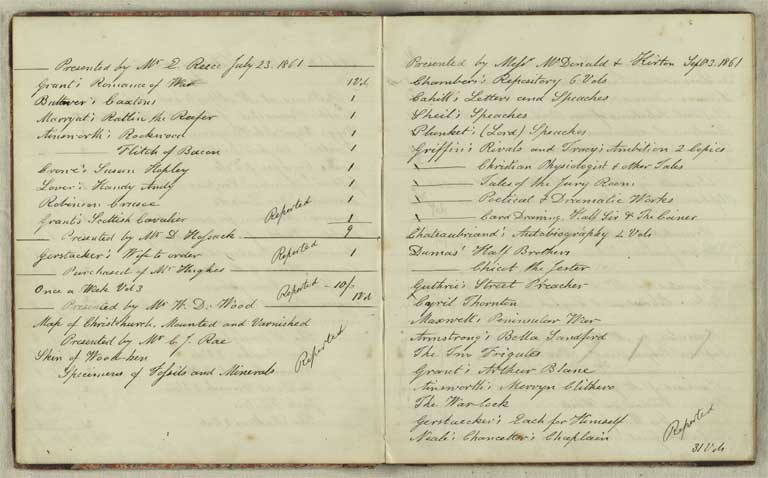 Presented by Mr E. Reece July 23. 1861
Grant's Romance of War 1 Vol
Bulwer's Caxtons 1
Marryat's Rattlin the Reefer 1
Ainsworth's Rookwood 1
——— Flitch of Bacon 1
Crowe's Susan Hopley 1
Lover's Handy Andy 1
Robinson Crusoe 1
Grant's Scottish Cavalier Reported 1
9
Presented by Mr D. Hossack
Gerstacker's Wife to order Reported 1
Purchased of Mr Hughes
Once a Week Vol 3 Reported - 10/- 1 Vol
Presented by Mr W. D. Wood
Map of Christchurch. Mounted and Varnished
Presented by Mr C. J. Rae
Skin of Wood-hen Reported
Specimens of Fossils and Minerals
Presented by Messrs McDonald & Hirton Sept 3. 1861
Chambers's Repository 6 Vols
Cahill's Letters and Speaches
Sheil's Speaches
Plunket's (Lord) Speaches
Griffin's Rivals and Tracy's Ambition 2 Copies
——— Christian Physiologist & other Tales
——— Tales of the Jury Room
——— Poetical & Dramatic Works
——— Card Drawing, Half Sir & The Coiner
Chateaubriand's Autobiography 4 Vols
Dumas' Half Brothers
——— Chicot the Jester
Guthrie's Street Preacher
Cyril Thornton
Maxwell's Peninsular War
Armstrong's Bella Sandford
The Two Frigates
Grant's Arthur Blane
Ainsworth's Mervyn Clitheroe
The Warlock
Gerstaecker's Each for Himself
Neale's Chancellor's Chaplain Reported
31 Vols